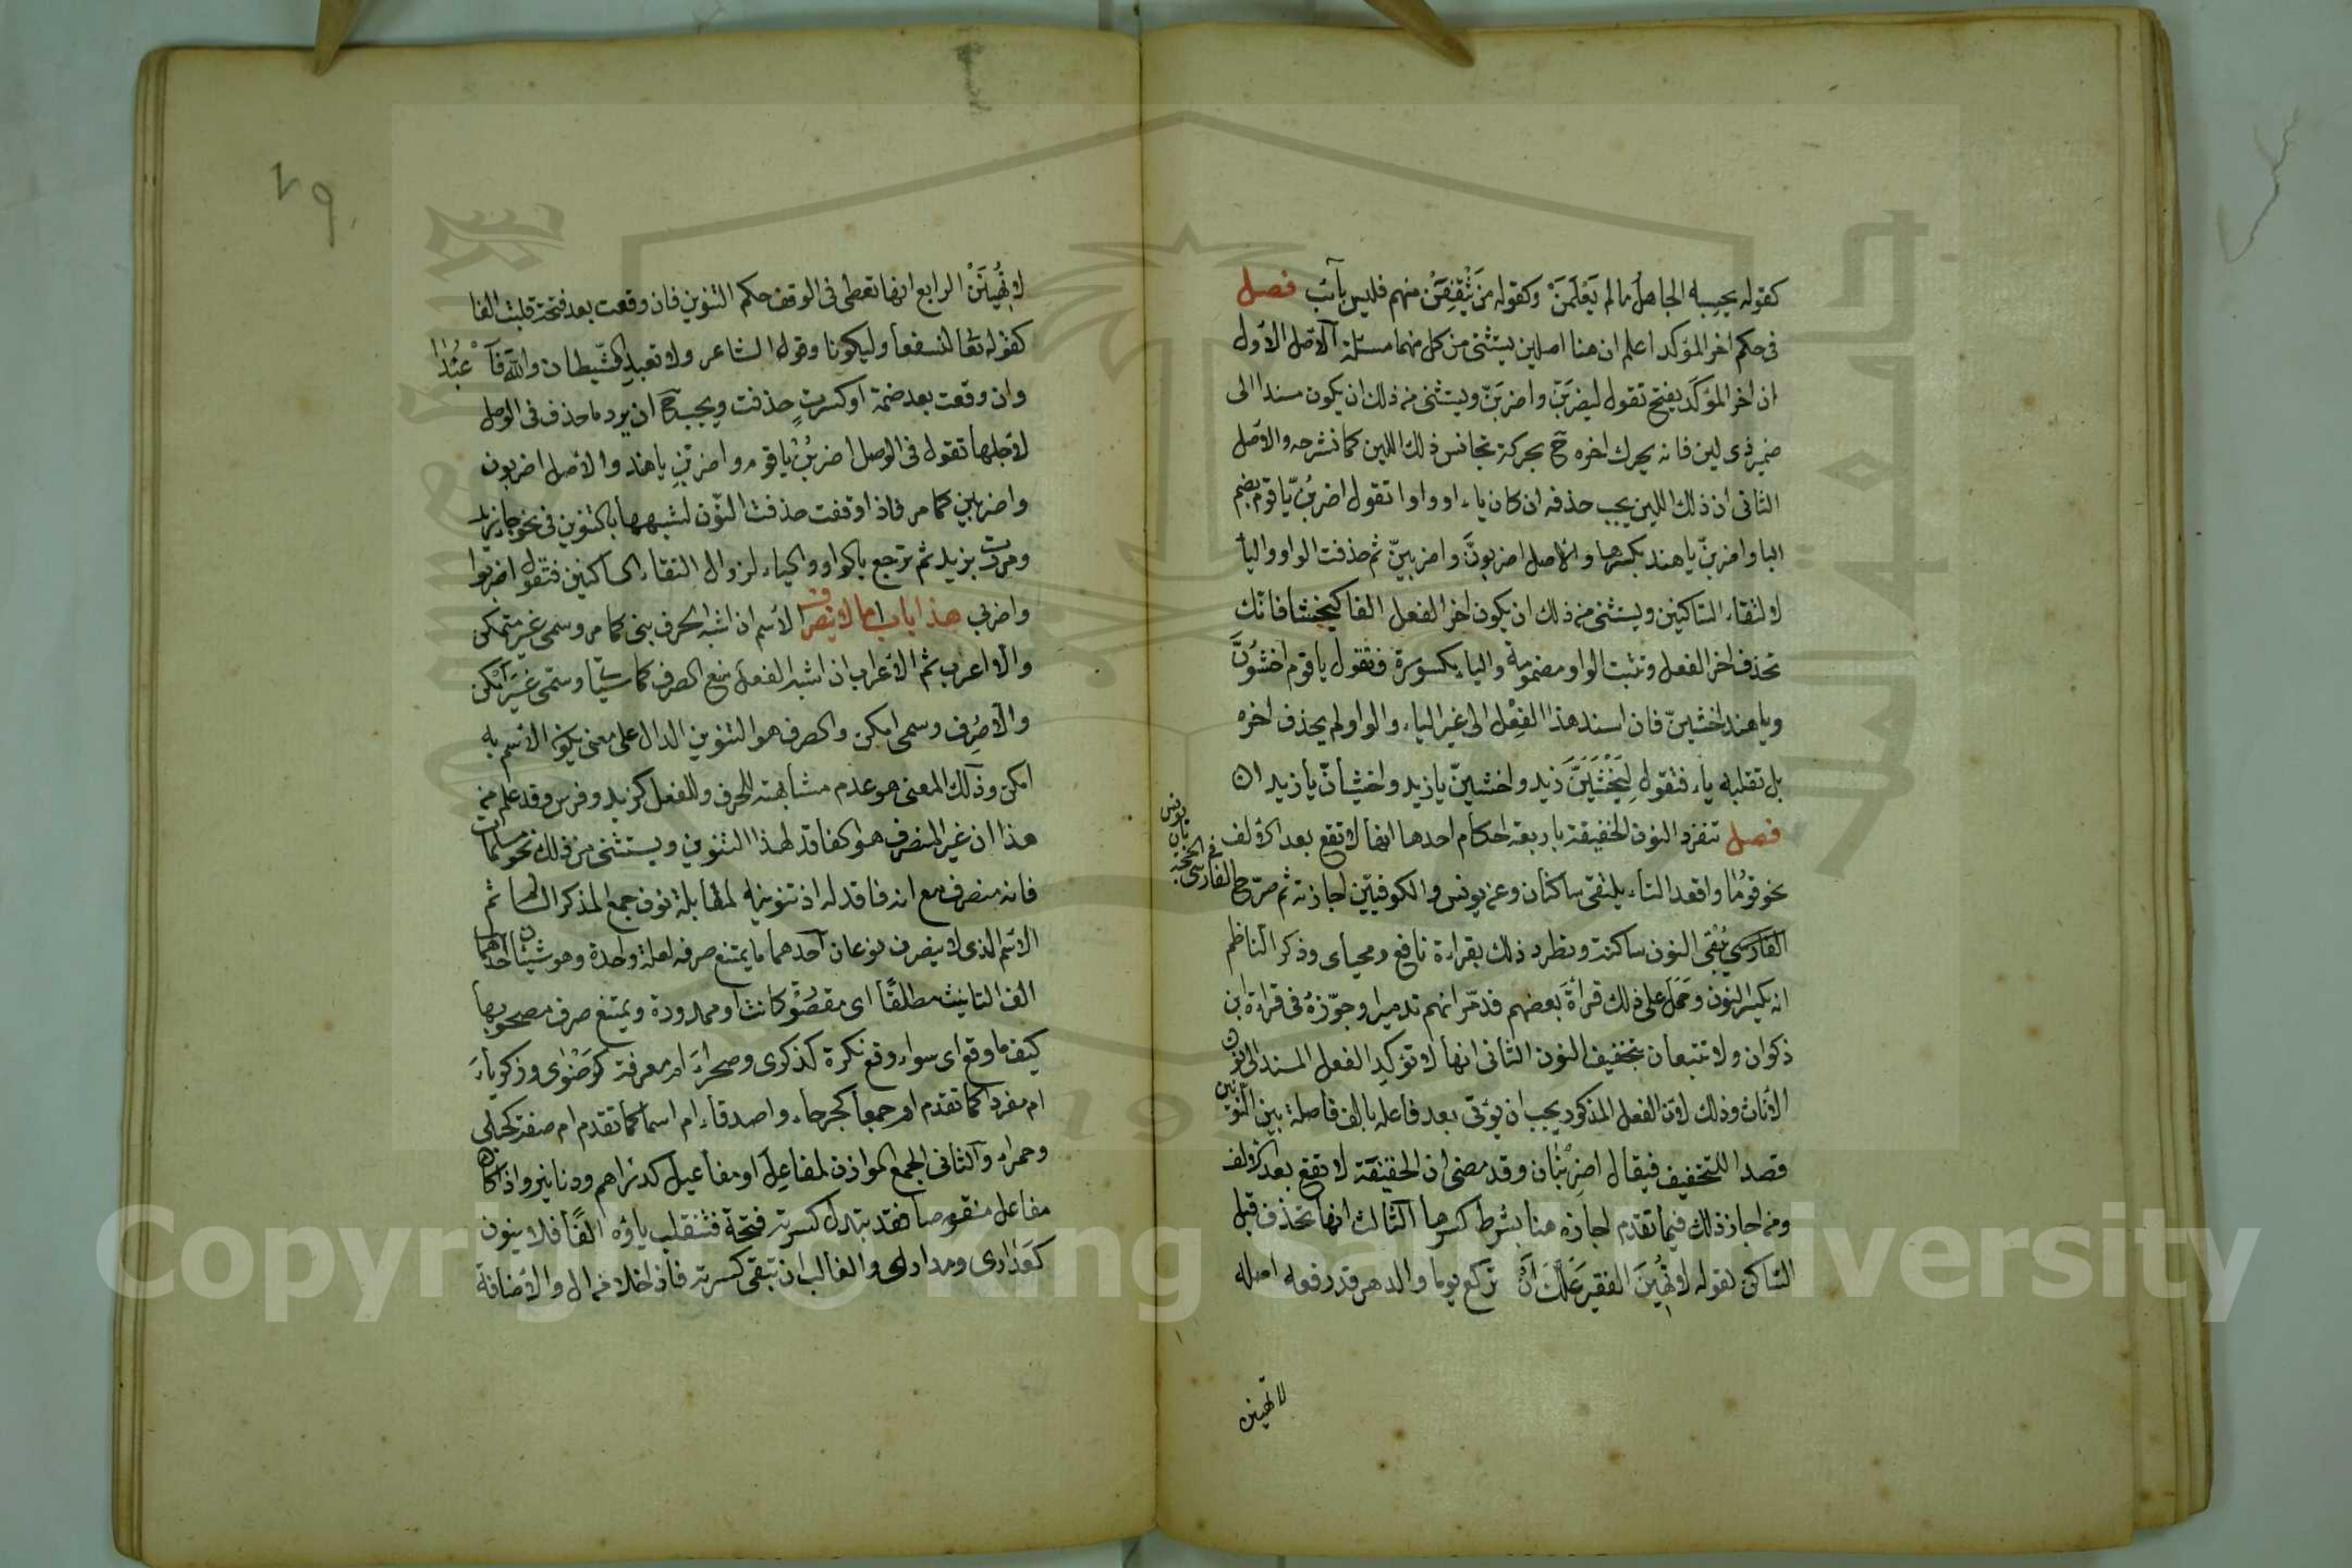 كقوله يحسبه الجاهل ما لم يَعْلَمَنْ وكقوله مَن نثقفن منهم فليس بآئب فصل
فى حكم اخر المؤكد اعلم ان هنا اصلين يستثنى من كل منهما مسئلة الاصل الاول
ان اخر المؤكد يفتح تقول ليضربَنّ واضربَنّ ويستثنى من ذلك ان يكون مسندا الى
ضمير ذى لين فانه يحرك اخره ح بحركة تجانس ذلك اللين كما نشرحه والاصل
الثانى ان ذلك اللين يجب حذفه ان كان ياء او واوا تقول اضربُنّ يا قوم بضم
البا واضربِنّ يا هند بكسرها والاصل اضربونّ واضربينّ ثم حذفت الواو واليا
لالتقاء الساكنين ويستثنى من ذلك ان يكون اخر الفعل الفا كيخشا فانك
تحذف اخر الفعل وتثبت الواو مضمومة والياء مكسورة فتقول يا قوم اخشَوُنَّ
ويا هند اخشينّ فان اسند هذا الفعل الى غير الياء والواو لم يحذف اخره
بل تقلبه ياء فتقول ليَخْشَيَنَّ زيد واخشينّ يا زيد واخشيانّ يا زيدان
فصل تنفرد النون الخفيفة باربعة احكام احدها انها لا تقع بعد الالف
نحو قوما واقعدا لئلا يلتقى ساكنان وعن يونس والكوفيين اجازته ثم صرح
الفارسى فى الحجة
بان يونس
الفارسى يُبقى النون ساكنة ونظر ذلك بقراءة نافع ومحياى وذكر الناظم
انه يكسر النون وحَمل على ذلك قراءة بعضهم فدمّرانهم تدميرا وجوّزه فى قراءة ابن
ذكوان ولا تتبعان بتخفيف النون الثانى انها لا تؤكد الفعل المسند الى نون
الاناث وذلك لان الفعل المذكور يجب ان يؤتى بعد فاعله بالف فاصلة بين النونين
قصدا للتخفيف فيقال اضربْنانّ وقد مضى ان الخفيفة لا تقع بعد الالف
ومن اجاز ذلك فيما تقدم اجازه هنا بشرط كسرها الثالث انها تحذف قبل
الساكن كقوله لا تُهينَ الفقير علّك اَنْ تركع يوما والدهر قد رفعه اصله
لا تهينن
٧٩
لا تُهينَنْ الرابع انها تعطى فى الوقف حكم التنوين فان وقعت بعد فتحة قلبت الفا
كقوله تعا لنسفعا وليكونا وقول الشاعر ولا تعبد الشيطان والله فاعبُدا
وان وقعت بعد ضمة او كسرة حذفت ويجب ح ان يرد ما حذف فى الوصل
لاجلها تقول فى الوصل اضربُنْ يا قوم واضربِنْ يا هند والاصل اضربون
واضربين كما مر فاذا وقفت حذفت النون لشبهها بالتنوين فى نحو جاء زيد
ومررت بزيد ثم ترجع بالواو والياء لزوال التقاء الساكنين فتقول اضربوا
واضربى هذا باب ما لا ينصرف الاسم ان اشبه الحرف بنى كما مر وسمى غير متمكن
والا اعرب ثم الاعراب ان اشبه الفعل منع الصرف كما سيأتى وسمى غيرَ امكن
والا صُرِف وسمى امكن والصرف هو التنوين الدال على معنى يكون الاسم به
امكن وذلك المعنى هو عدم مشابهته للحرف وللفعل كزيد وفرس وقد علم من
هذا ان غير المنصرف هو الفاقد لهذا التنوين ويستثنى من ذلك نحو مسلمات
فانه منصرف مع انه فاقد له اذ تنوينه لمقابلة نون جمع المذكر السالم ثم
الاسم الذى لا ينصرف نوعان احدهما ما يمتنع صرفه لعلة واحدة وهو شيئان احدهما
الف التانيث مطلقًا اى مقصورة كانت او ممدودة ويمتنع صرف مصحوبها
كيف ما وقع اى سواء وقع نكرة كذكرى وصحراءَ ام معرفة كرَضْوى وزكرياءَ
ام مفردا كما تقدم ام جمعا كجرحاء واصدقاء ام اسما كما تقدم ام صفة كحبلى
وحمراء والثانى الجمع الموازن لمفاعِل او مفاعيل كدراهم ودنانير واذا كان
مفاعل منقوصا فقد تبدل كسرته فتحة فتنقلب ياؤه الفًا فلا ينون
كعَذارى ومدارى والغالب ان تبقى كسرته فاذا خلا من ال والاضافة
Copyright © King Saud University